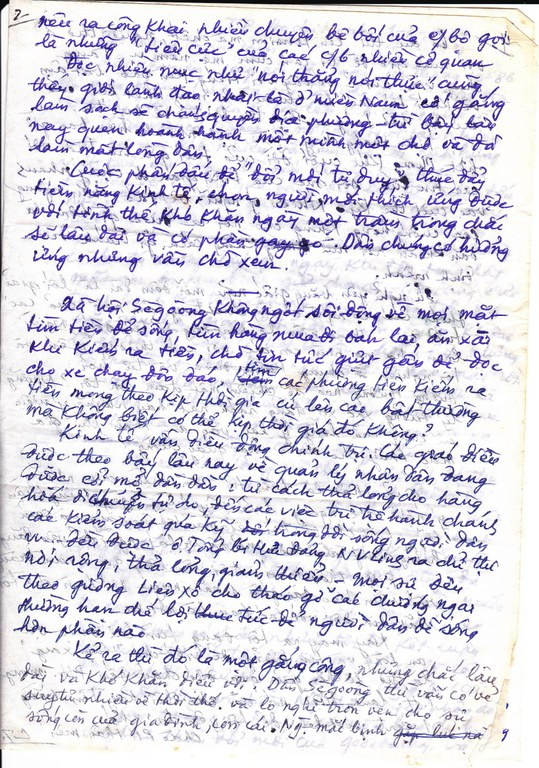 2-
nêu ra công khai nhiều chuyện bê bối của c/bộ gọi
là những "tiêu cực" của các c/b nhiều cơ quan
Đọc nhiều mục như "nói thẳng nói thực" cũng
thấy giới lãnh đạo nhất là ở miền Nam cố gắng
làm sạch sẽ chánh quyền địa phương từ bấy lâu
nay quen hoành hành một mình một chợ và đã
làm mất lòng dân.
Cuộc phấn đấu để "đổi mới tư duy", thúc đẩy
tiềm năng kinh tế, chọn người mới thích ứng được
với tình thế khó khăn ngày một trầm trọng chắc
sẽ lâu dài và có phần gay go. Dân chúng có hưởng
ứng nhưng vẫn chờ xem.
Xã hội Sègoòng không ngớt sôi động về mọi mặt
tìm tiền để sống, tìm hàng mua đi bán lại, ăn xài
khi kiếm ra tiền, chờ tin tức giựt gân để đọc
cho xe chạy đôn đáo, tìm các phương tiện kiếm ra
tiền mong theo kịp thời giá cứ lên cao bất thường
mà không biết có thể kịp thời giá đó không?
Kinh tế vẫn điều động chính trị. Các giáo điều
được theo bấy lâu nay về quản lý nhân dân đang
được cởi mở dần dần: từ cách thả lỏng cho hàng
hóa di chuyển tự do, đến các việc trừ hành chánh
các kiểm soát quá kỹ đối trong đời sống người dân
v.v. đều được ô. Tổng bí thư đảng NVLinh ra chỉ thị
nới rộng, thả lỏng, giảm thiểu - mọi sự đều
theo gương Liên xô cho tháo gỡ các chướng ngại
thường hạn chế lợi tức để người dân dễ sống
hơn phần nào
Kể ra thì đó là một gắng công, nhưng chắc lâu
dài và khó khăn điều với. Dân Sègoòng thì vẫn cố vẻ
suy tư nhiều về thời thế và lo nghĩ trọn vẹn cho sự
sống còn của gia đình, con cái. Ng. mất bịnh